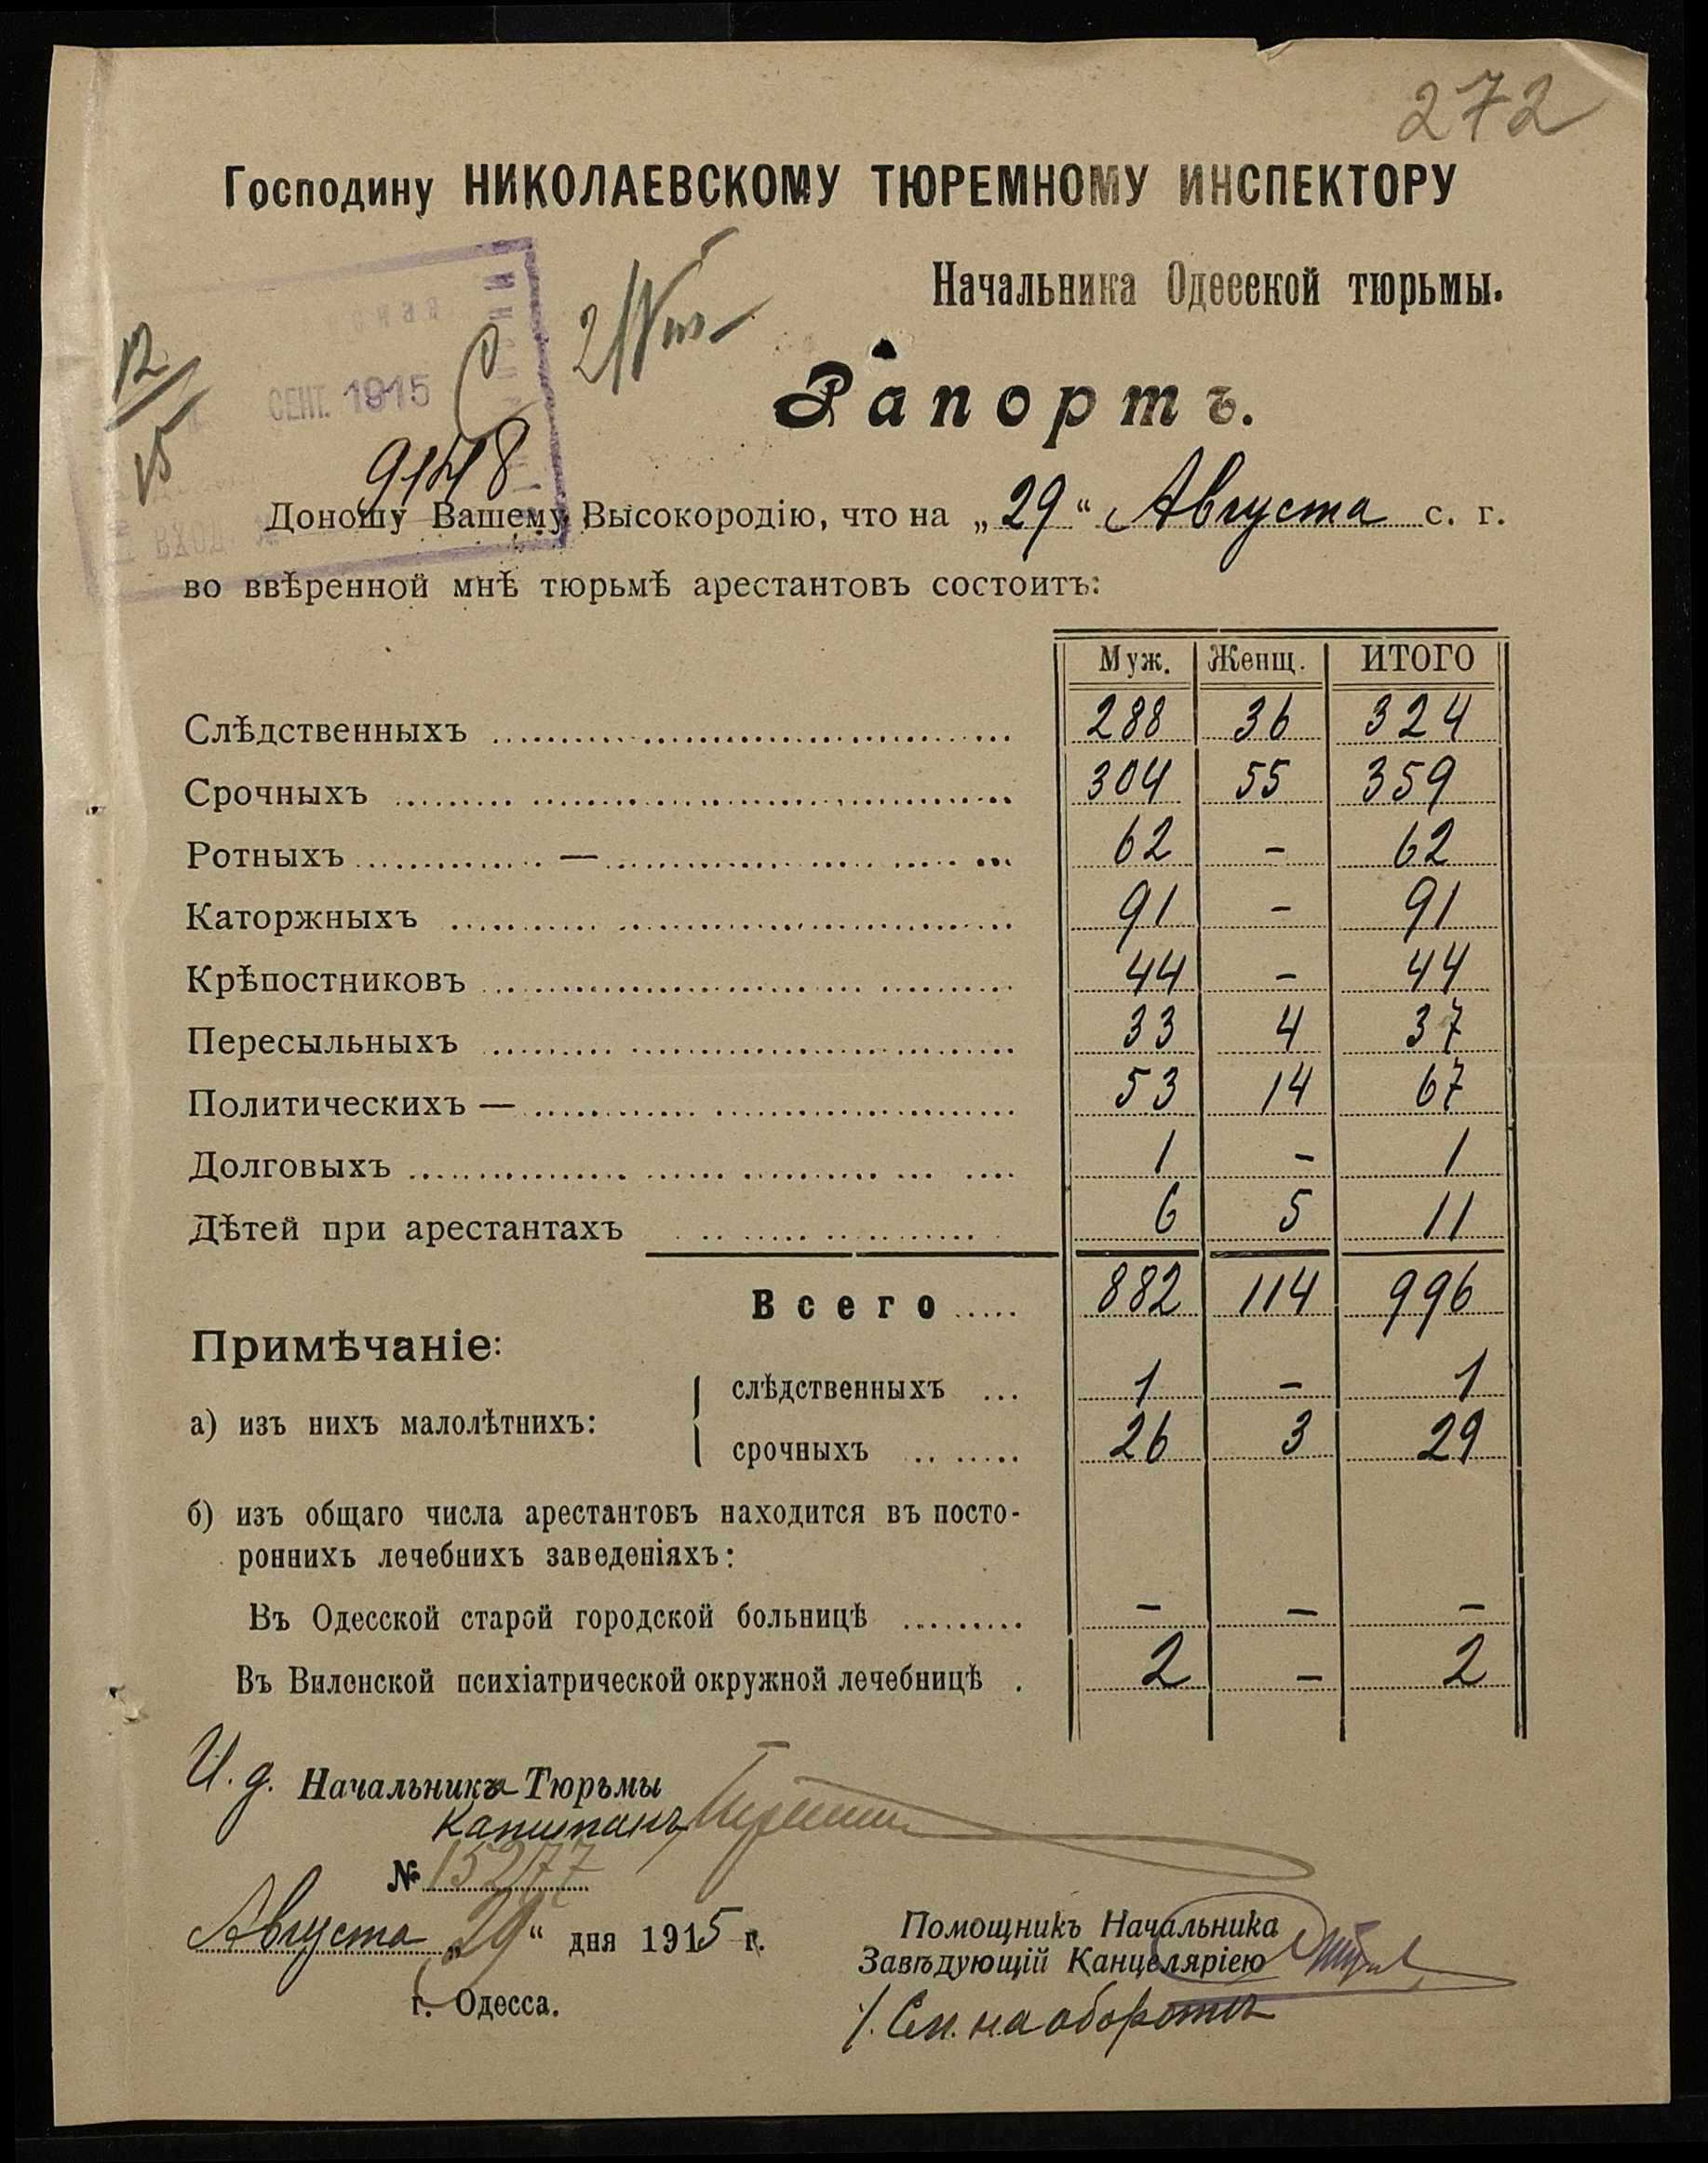 272
Господину НИКОЛАЕВСКОМУ ТЮРЕМНОМУ ИНСПЕКТОРУ
Начальника Одесской тюрьмы.
12/15
СЕНТ. 1915
Рапортъ.
9148
Доношу Вашему Высокородію, что на „29“ Августа с. г.
ВХОД
во ввѣренной мнѣ тюрьмѣ арестантовъ состоитъ:
Муж. Женщ. ИТОГО
Слѣдственныхъ 288 36 324
Срочныхъ 304 55 359
Ротныхъ — 62 - 62
Каторжныхъ 91 - 91
Крѣпостниковъ 44 - 44
Пересыльныхъ 33 4 37
Политическихъ — 53 14 67
Долговыхъ 1 - 1
Дѣтей при арестантахъ 6 5 11
Всего 882 114 996
Примѣчаніе:
слѣдственныхъ 1 - 1
а) изъ нихъ малолѣтнихъ:
срочныхъ 26 3 29
б) изъ общаго числа арестантовъ находится въ посто-
роннихъ лечебнихъ заведеніяхъ:
Въ Одесской старой городской больницѣ - - -
Въ Виленской психіатрической окружной лечебницѣ 2 - 2
И. д. Начальника Тюрьмы
Капитанъ
№ 15277
Августа „29“ дня 1915 г.
г. Одесса.
Помощникъ Начальника
Завѣдующій Канцеляріею
/. См. на оборотѣ